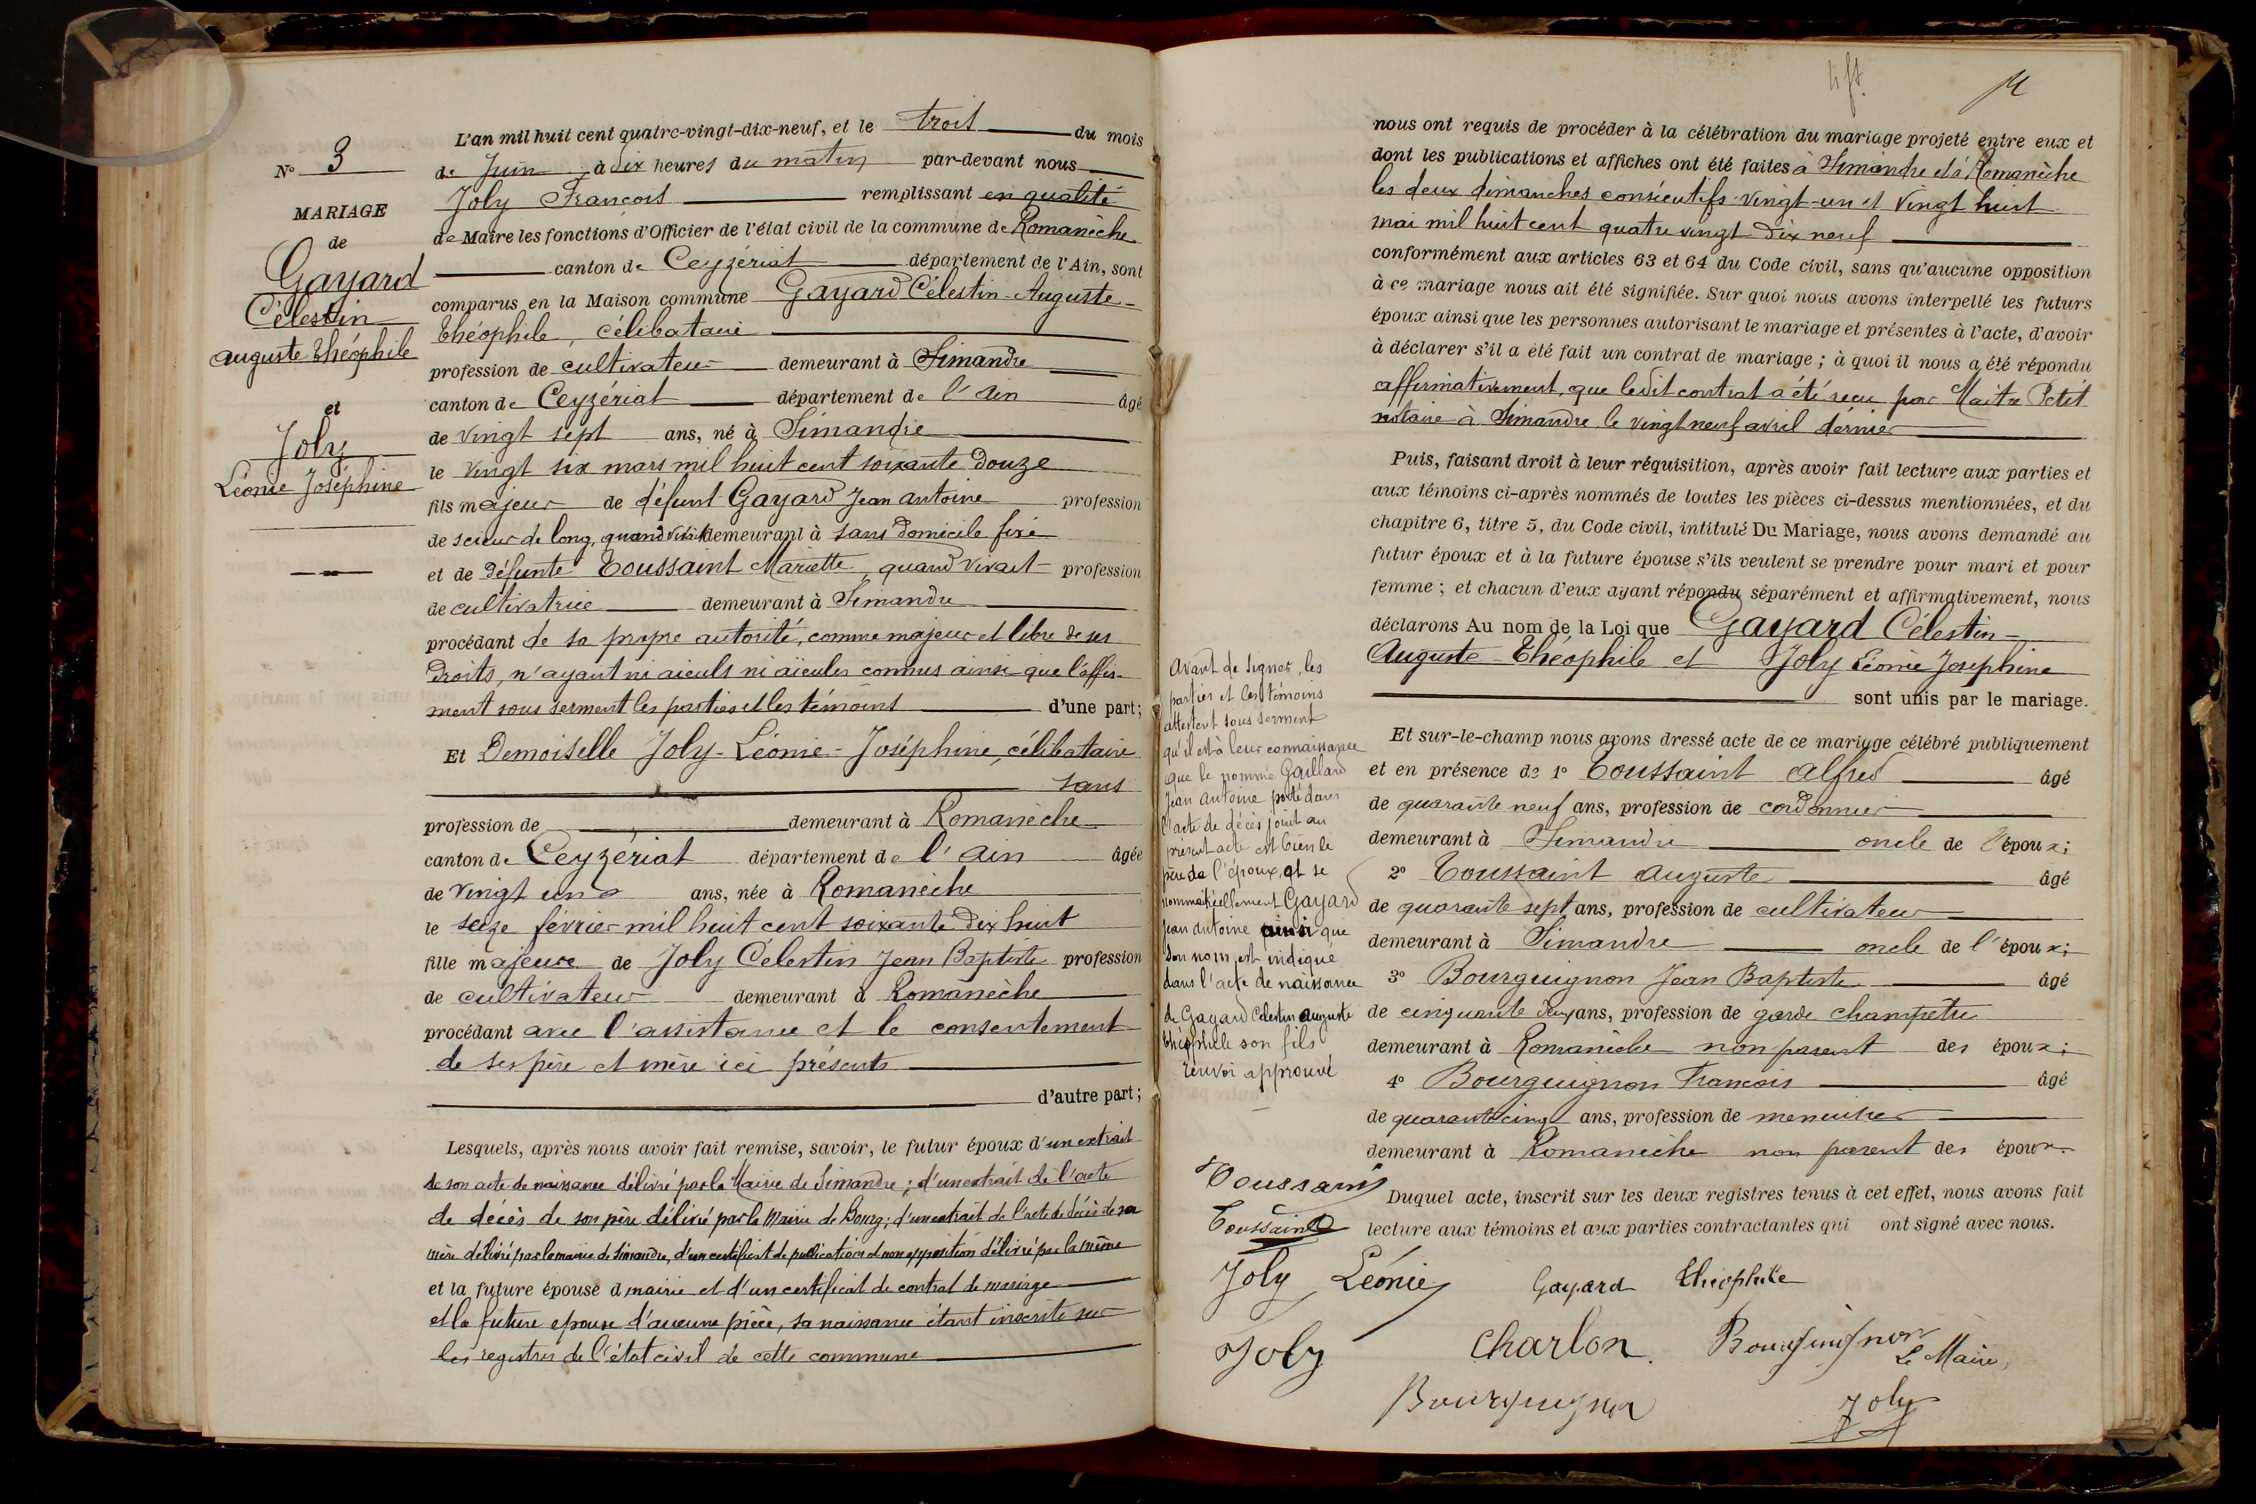 N° 3
MARIAGE
de
Gayard
Célestin
Auguste Théophile
et
Joly
Léonie Joséphine
L'an mil huit cent quatre-vingt-dix-neuf, et le trois du mois
de Juin, à dix heures du matin par-devant nous
Joly François remplissant en qualité
de Maire les fonctions d'Officier de l'état civil de la commune de Romanèche
canton de Ceyzériat département de l'Ain, sont
comparus en la Maison commune Gayard Célestin-Auguste-
Théophile, célibataire
profession de cultivateur demeurant à Simandre
canton de Ceyzériat département de l'Ain âgé
de vingt sept ans, né à Simandre
le vingt six mars mil huit cent soixante douze
fils majeur de défunt Gayard Jean Antoine profession
de scieur de long, quand vivait demeurant à sans domicile fixe
et de défunte Toussaint Mariette, quand vivait profession
de cultivatrice demeurant à Simandre
procédant de sa propre autorité, comme majeur et libre de ses
droits, n'ayant ni aieuls ni aïeules connus ainsi que l'affir-
ment sous serment les parties et les témoins d'une part;
Et Demoiselle Joly-Léonie-Joséphine, célibataire
sans
profession de demeurant à Romanèche
canton de Ceyzériat département de l'Ain âgée
de vingt un ans, née à Romanèche
le seize février mil huit cent soixante dix huit
fille majeure de Joly Célestin Jean Baptiste profession
de cultivateur demeurant à Romanèche
procédant avec l'assistance et le consentement
de ses père et mère ici présents
d'autre part;
Lesquels, après nous avoir fait remise, savoir, le futur époux d'un extrait
de son acte de naissance délivré par la Mairie de Simandre; d'un extrait de l'acte
de décès de son père délivré par la Mairie de Bourg; d'un extrait de l'acte de décès de sa
mère délivré par la mairie de Simandre, d'un certificat de publication et non opposition délivré par la même
et la future épouse d mairie et d'un certificat de contrat de mariage
et la future epouse d'aucune pièce, sa naissance étant inscrite sur
les registres de l'état civil de cette commune
Avant de signer, les
parties et les témoins
attestent sous serment
qu'il est à leur connaissance
que le nommé Gaillard
Jean Antoine porté dans
l'acte de décès joint au
présent acte est bien le
père de l'époux, et se
nommait réellement Gayard
Jean Antoine ainsi que
son nom est indiqué
dans l'acte de naissance
de Gayard Célestin Auguste
Théophile son fils
renvoi approuvé
nous ont requis de procéder à la célébration du mariage projeté entre eux et
dont les publications et affiches ont été faites à Simandre et à Romanèche
les deux dimanches consécutifs vingt-un et vingt huit
mai mil huit cent quatre vingt dix neuf
conformément aux articles 63 et 64 du Code civil, sans qu'aucune opposition
à ce mariage nous ait été signifiée. Sur quoi nous avons interpellé les futurs
époux ainsi que les personnes autorisant le mariage et présentes à l'acte, d'avoir
à déclarer s'il a été fait un contrat de mariage; à quoi il nous a été répondu
affirmativement, que ledit contrat a été reçu par Maître Petit
notaire à Simandre le vingt neuf avril dernier
Puis, faisant droit à leur réquisition, après avoir fait lecture aux parties et
aux témoins ci-après nommés de toutes les pièces ci-dessus mentionnées, et du
chapitre 6, titre 5, du Code civil, intitulé Du Mariage, nous avons demandé au
futur époux et à la future épouse s'ils veulent se prendre pour mari et pour
femme; et chacun d'eux ayant répondu séparément et affirmativement, nous
déclarons Au nom de la Loi que Gayard Célestin-
Auguste-Théophile et Joly Léonie Joséphine
sont unis par le mariage.
Et sur-le-champ nous avons dressé acte de ce mariage célébré publiquement
et en présence de 1° Toussaint Alfred âgé
de quarante neuf ans, profession de cordonnier
demeurant à Simandre oncle de l'époux;
2° Toussaint Auguste âgé
de quarante sept ans, profession de cultivateur
demeurant à Simandre oncle de l'époux;
3° Bourguignon Jean Baptiste âgé
de cinquante deux ans, profession de garde champêtre
demeurant à Romanèche non parent des époux;
4° Bourguignon François âgé
de quarante cinq ans, profession de menuisier
demeurant à Romanèche non parent des époux.
Duquel acte, inscrit sur les deux registres tenus à cet effet, nous avons fait
lecture aux témoins et aux parties contractantes qui ont signé avec nous.
Toussaint
Toussaint
Joly Léonie Gayard Théophile
Joly Charlon Bourguignon Le Maire,
Bourguignon Joly